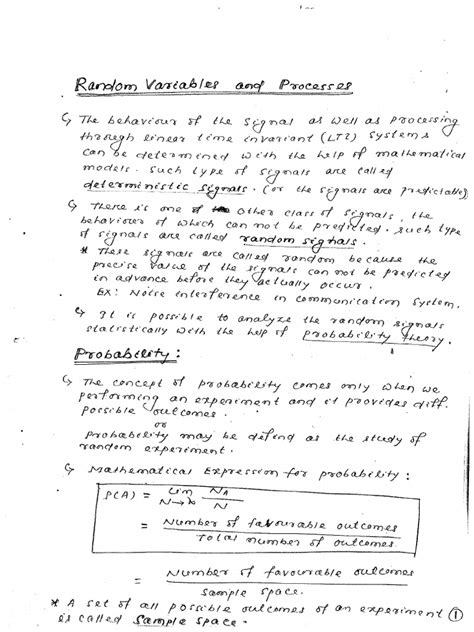 Random Variables and Processes
↳ The behaviour of the signal as well as processing
through linear time invariant (LTI) systems
can be determined with the help of mathematical
models. Such type of signals are called
deterministic signals. (or the signals are predictable)
↳ There is one of other class of signals, the
behaviour of which can not be predicted. Such type
of signals are called random signals.
* These signals are called random because the
precise value of the signals can not be predicted
in advance before they actually occur.
EX: Noise interference in communication system.
↳ It is possible to analyze the random signals
statistically with the help of probability theory.
Probability:
↳ The concept of probability comes only when we
performing an experiment and it provides diff.
possible outcomes.
or
Probability may be defind as the study of
random experiment.
↳ Mathematical Expression for probability:
P(A) = Lim N→∞ NA/N
= Number of favourable outcomes / Total number of outcomes
= Number of favourable outcomes / Sample space.
* A set of all possible outcomes of an experiment ①
is called sample space.